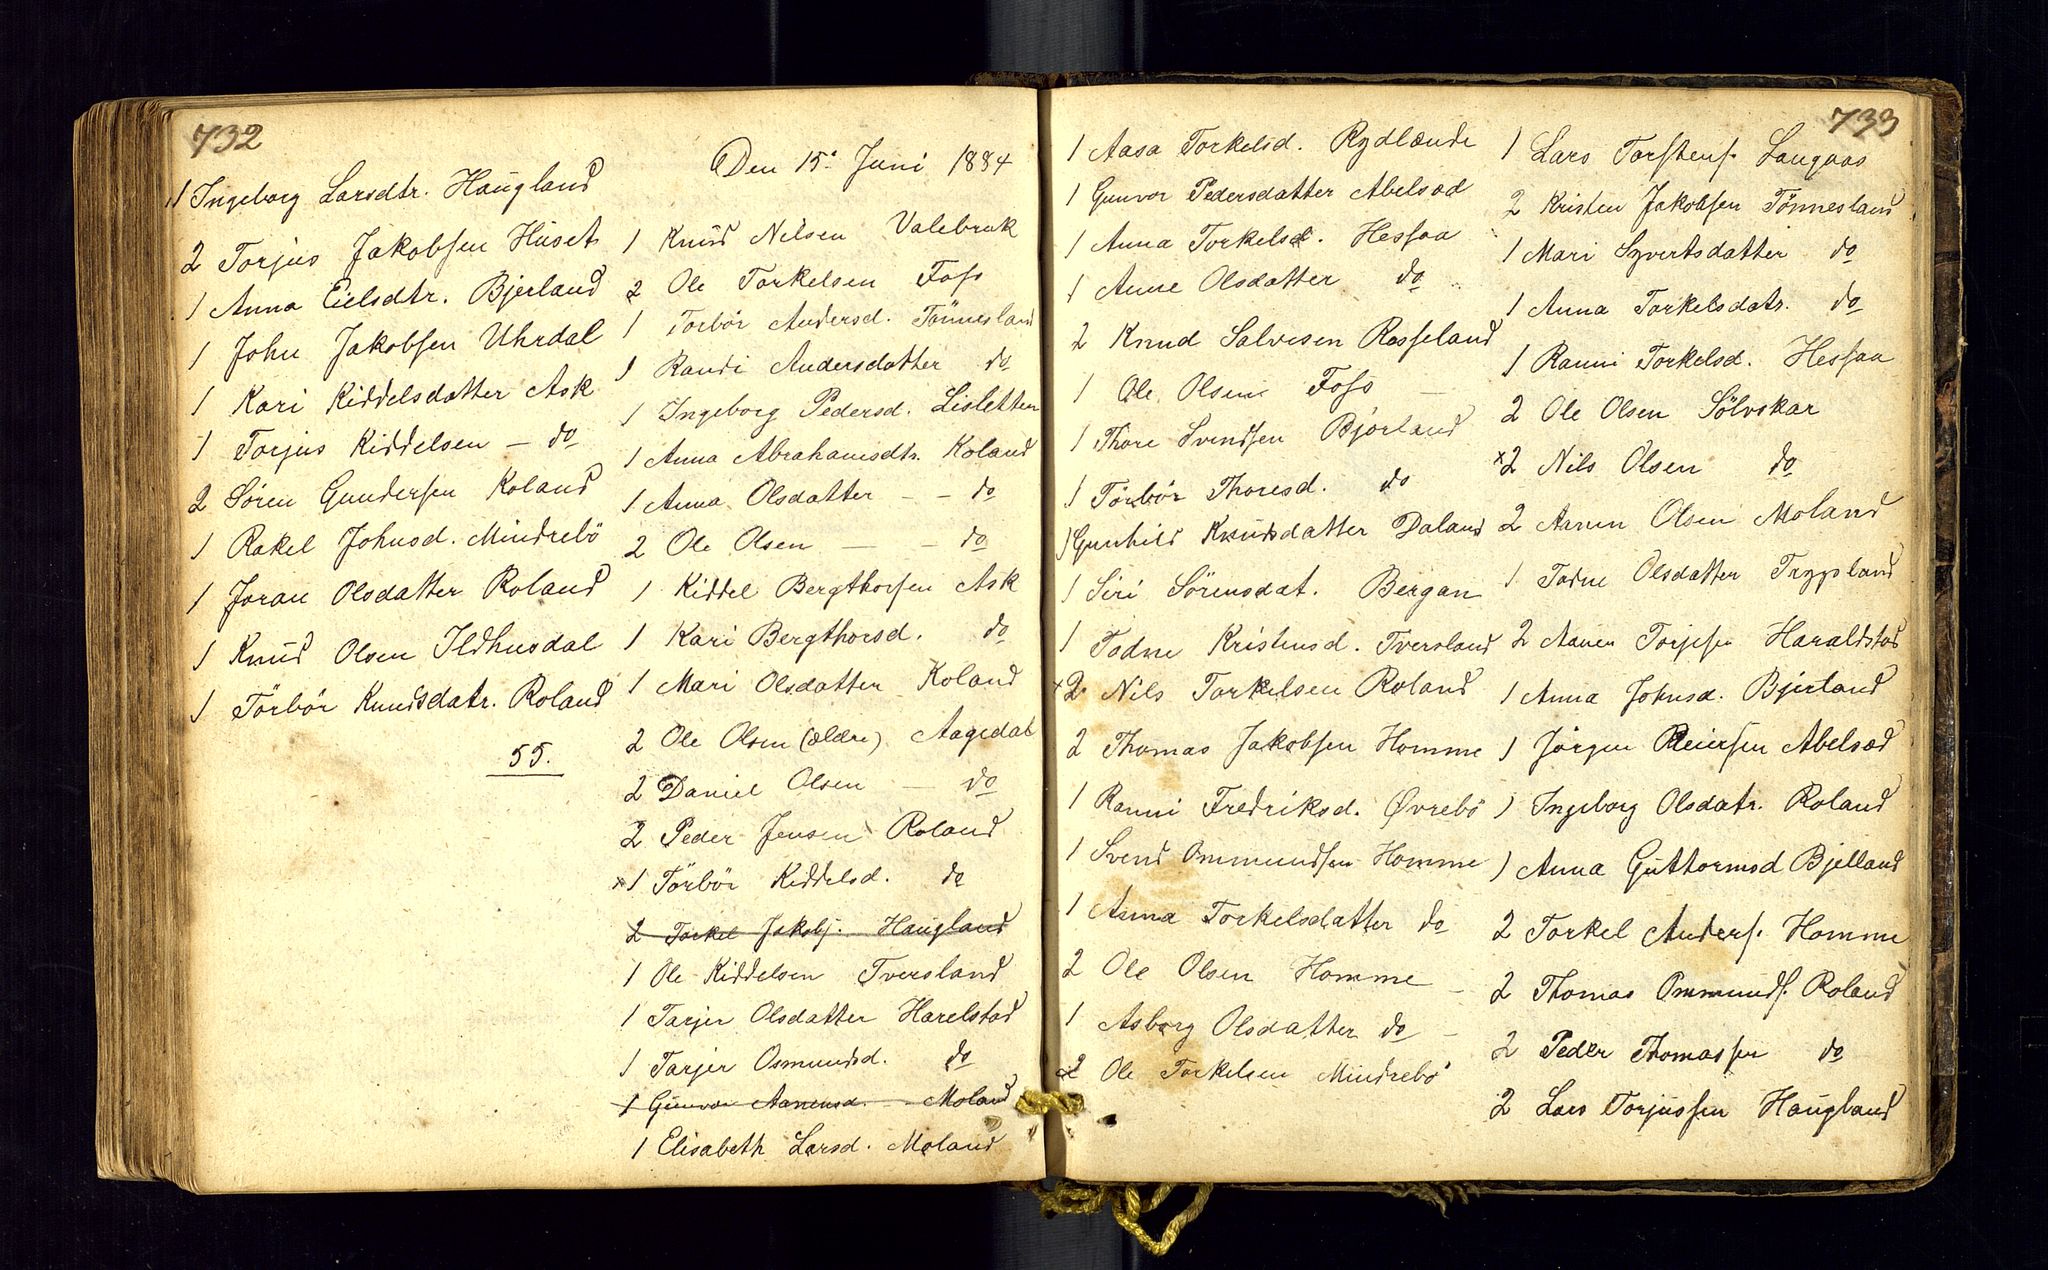 732
1 Ingeborg Larsdtr. Haugland
2 Torjus Jakobsen Huset
1 Anna Eielsdtr. Bjerland
1 John Jakobsen Uhrdal
1 Kari Kiddelsdatter Ask
1 Torjus Kiddelsen – do
2 Sören Gundersen Roland
1 Rakel Johnsd. Mindrebö
1 Joran Olsdatter Roland
1 Knud Olsen Ildhusdal
1 Törbör Knudsdatr. Roland
55.
Den 15de Juni 1884
1 Knud Nilsen Valebruk
2 Ole Torkelsen Foss
1 Torbör Andersd. Tönnesland
1 Randi Andersdatter do
1 Ingeborg Pedersd. Lisletten
1 Anna Abrahamsdtr. Roland
1 Anna Olsdatter – – do
2 Ole Olsen — – do
1 Kiddel Bergthorsen Ask
1 Kari Bergthorsd. do
1 Mari Olsdatter Roland
2 Ole Olsen (ældre) Aagedal
2 Daniel Olsen — do
2 Peder Jensen Roland
x1 Törbör Kiddelsd. do
2 Torkel Jakobs. Haugland
1 Ole Kiddelsen Tversland
1 Tarjer Olsdatter Harelstad
1 Tarjer Osmundsd. do
1 Gunvor Aanensd. – Moland
1 Elisabeth Larsd. Moland
733
1 Aasa Torkelsd. Rydlænde
1 Gunvor Pedersdatter Abelsæd
1 Anna Torkelsd. Hessaa
1 Anne Olsdatter do
2 Knud Salvesen Rosseland
1 Ole Olsen Foss —
1 Thore Svendsen Bjorland
1 Törbör Thoresd. do
1 Gunhild Knudsdatter Daland
1 Siri Sörensdat. Bergan
1 Todne Kristensd. Tversland
x2 Nils Torkelsen Roland
2 Thomas Jakobsen Homme
1 Ranni Fredriksd. Øvrebö
1 Svend Ommundsen Homme
1 Anna Torkelsdatter do
2 Ole Olsen Homme –
1 Asborg Olsdatter do –
x2 Ole Torkelsen Mindrebö
1 Lars Torstens. Langaas
2 Kristen Jakobsen Tönnesland
1 Mari Syvertsdatter do
1 Anna Torkelsdatr. do
1 Ranni Torkelsd. Hessaa
2 Ole Olsen Sölvskar
x2 Nils Olsen do
2 Aanen Olsen Moland
1 Todne Olsdatter Trypsland
2 Aanen Torjesen Haraldstad
1 Anna Johnsd. Bjerland
1 Jörgen Reiersen Abelsæd
1 Ingeborg Olsdatr. Roland
1 Anna Guttormsd Bjelland
2 Torkel Anders. Homme
2 Thomas Ommunds. Roland
2 Peder Thomassen do
2 Lars Torjussen Haugland